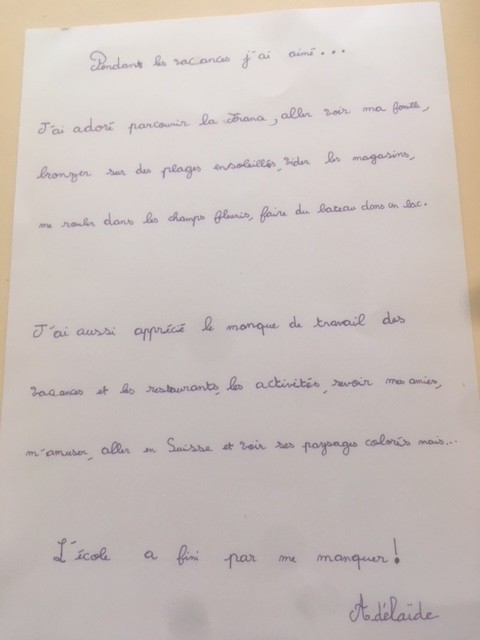 Pendant les vacances j'ai aimé...
J'ai adoré parcourir la Drana, aller voir ma famille,
bronzer sur des plages ensoleillés, vider les magasins,
me rouler dans les champs fleuris, faire du bateau dans un lac.
J'ai aussi apprécié le manque de travail des
vacances et les restaurants, les activités, revoir mes amies,
m'amuser, aller en Suisse et voir ses paysages colorés mais...
L'école a fini par me manquer!
Adélaïde